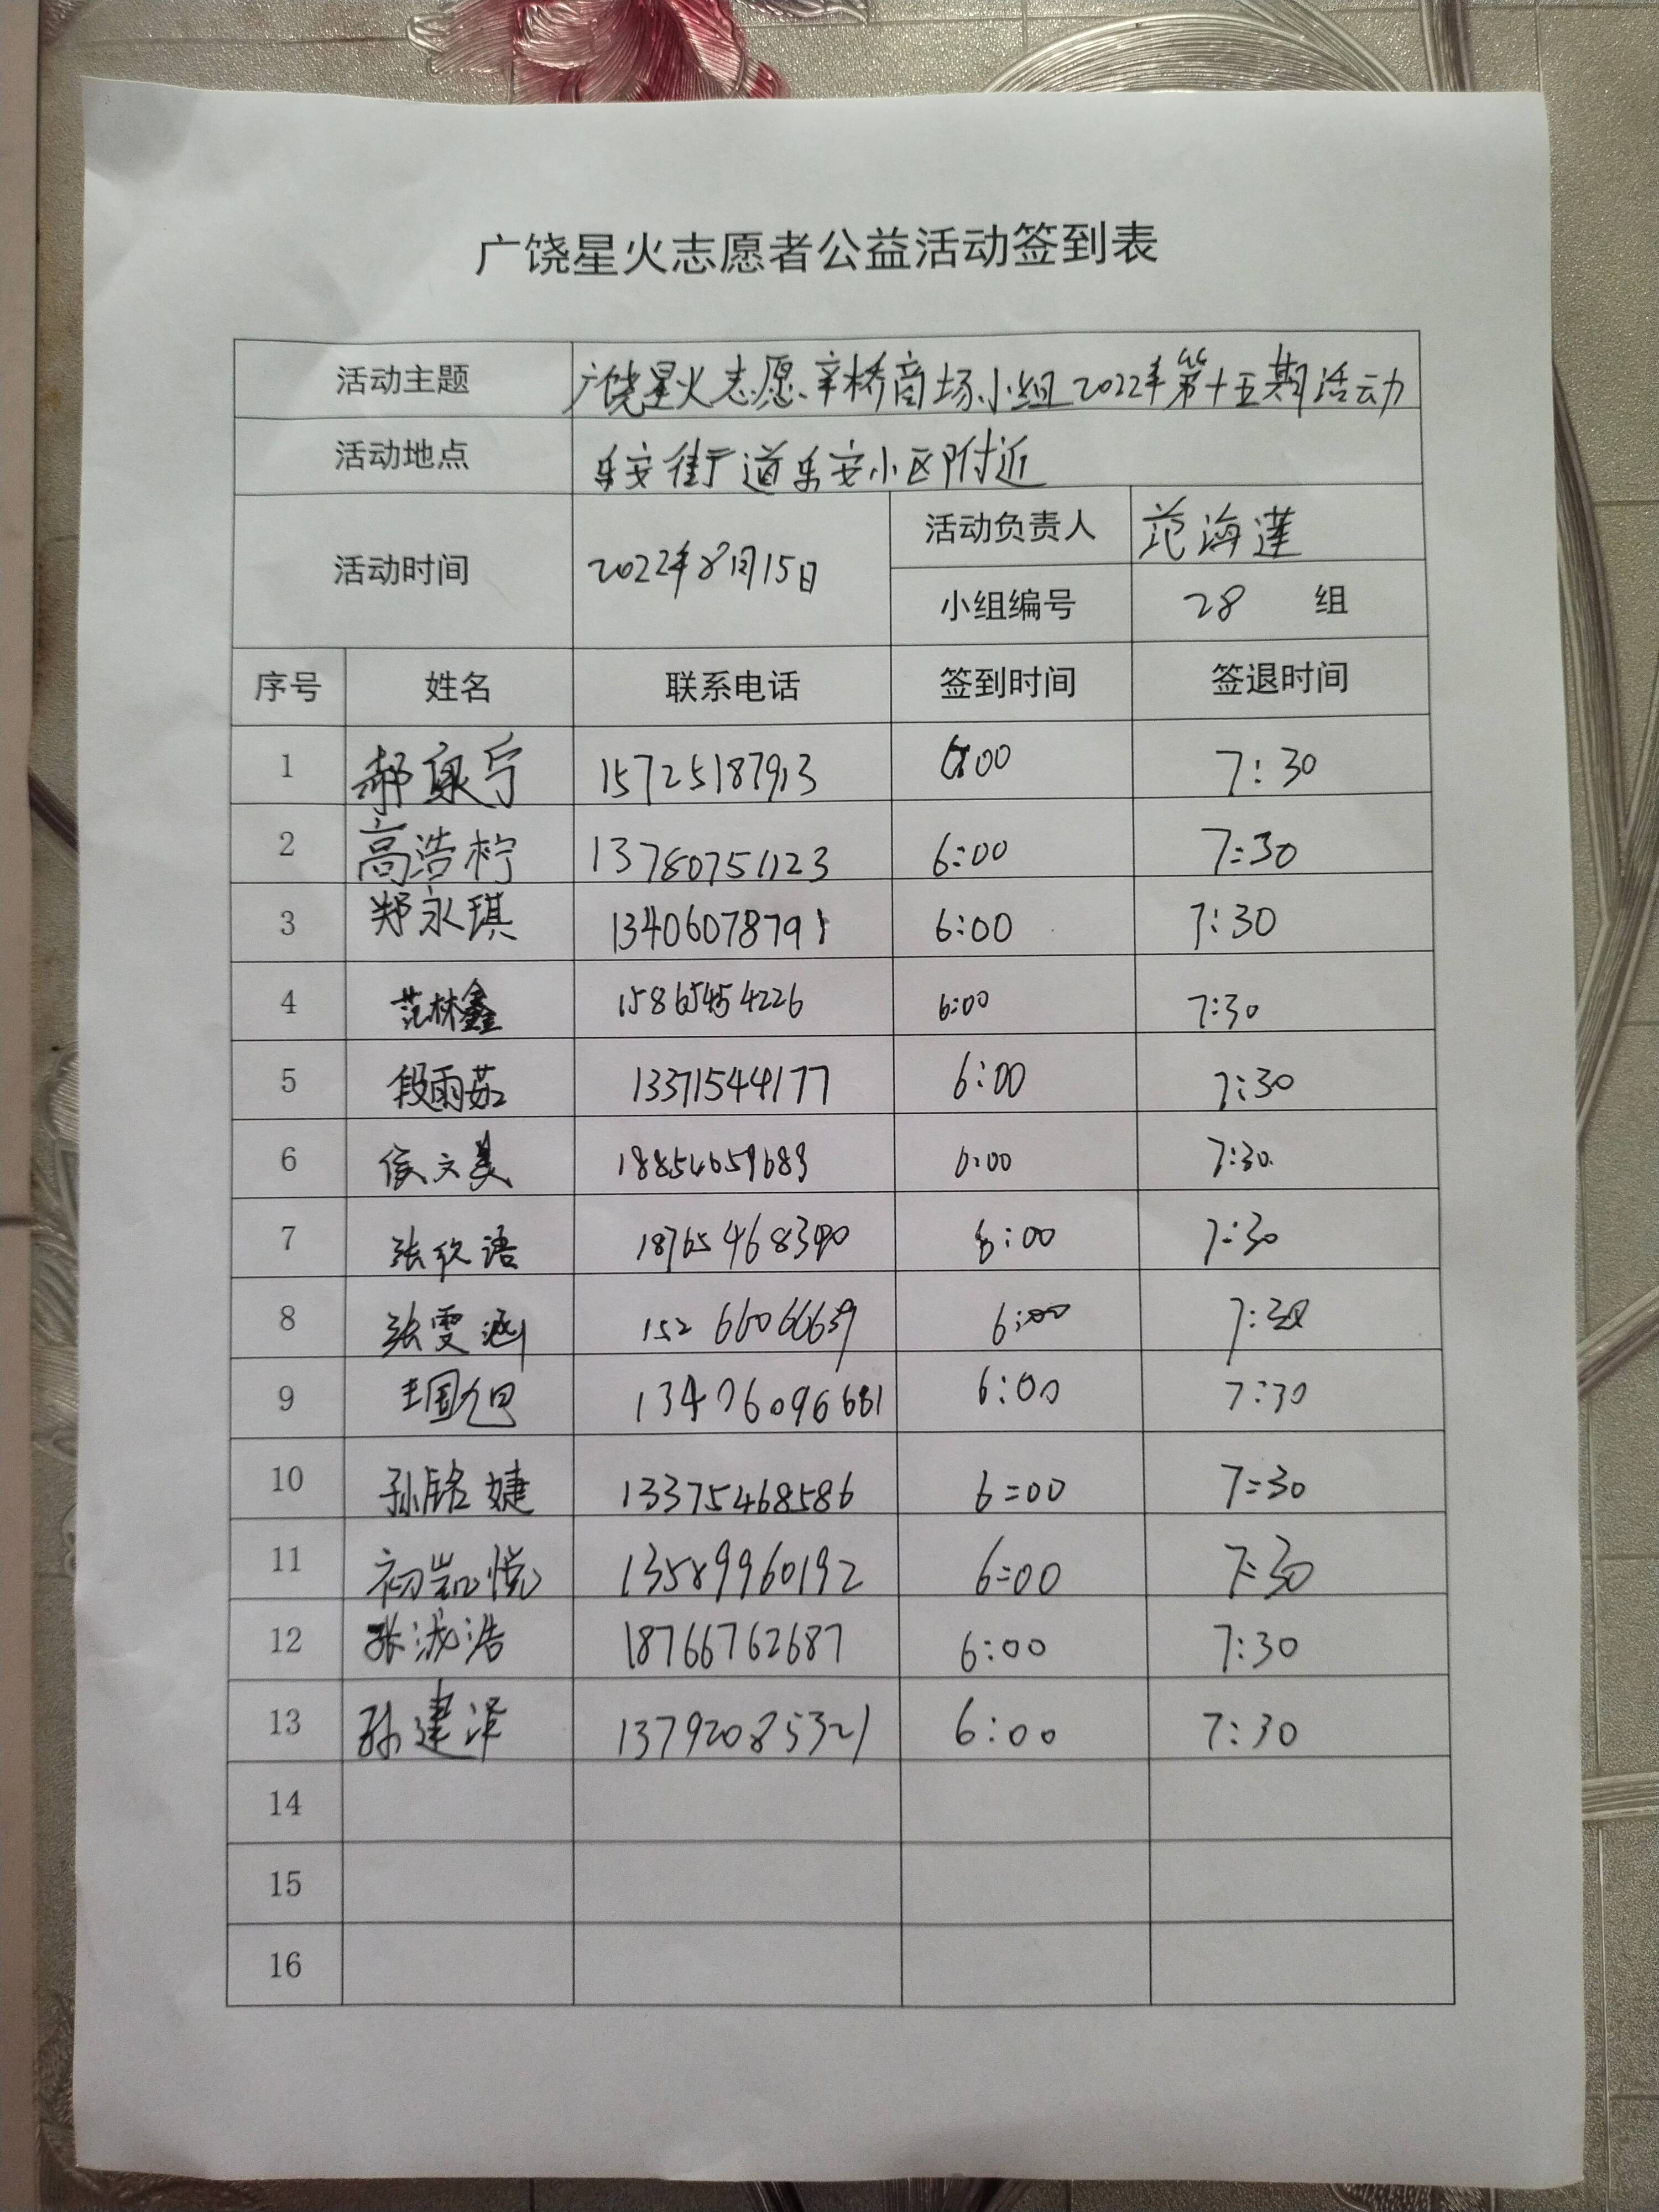 广饶星火志愿者公益活动签到表
活动主题 广饶星火志愿辛桥商场小组2022年第十五期活动
活动地点 乐安街道乐安小区附近
活动时间 2022年8月15日 活动负责人 范海莲
小组编号 28 组
序号 姓名 联系电话 签到时间 签退时间
1 郝康宁 15725187913 6:00 7:30
2 高浩柠 13780751123 6:00 7:30
3 郑永琪 13406078791 6:00 7:30
4 范林鑫 15865454226 6:00 7:30
5 段雨茹 13371544177 6:00 7:30
6 侯文美 18854659689 6:00 7:30
7 张欣语 6:00 7:30
8 张雯涵 15266066639 6:00 7:30
9 王国旭 13406096681 6:00 7:30
10 孙铭婕 13375468586 6:00 7:30
11 初凯悦 13589960192 6:00 7:30
12 张浩 18766762687 6:00 7:30
13 孙建泽 13792085321 6:00 7:30
14
15
16